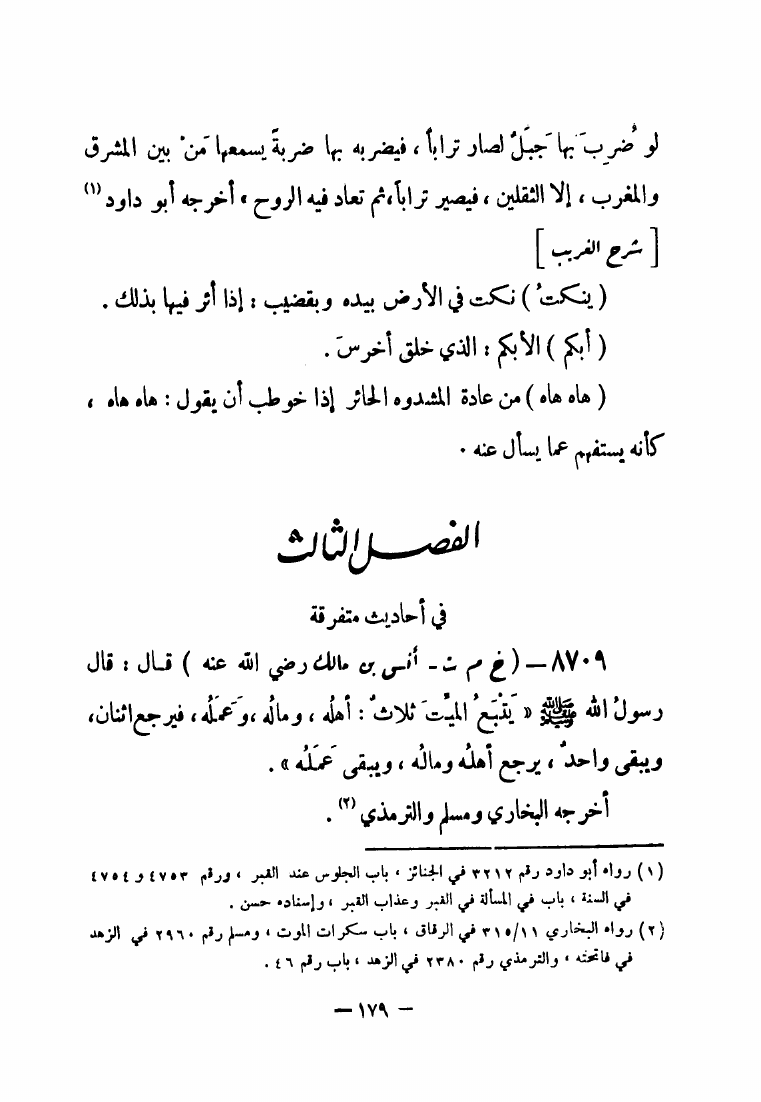 لو ضُرِبَ بها جَبَلٌ لصار تراباً ، فيضربه بها ضربةً يسمعها مَنْ بين المشرق
والمغرب ، إلا الثقلين ، فيصير تراباً ، ثم تعاد فيه الروح » أخرجه أبو داود (١)
[ شرح الغريب ]
( ينكتُ ) نكت في الأرض بيده وبقضيب : إذا أثر فيها بذلك .
( أبكم ) الأبكم : الذي خلق أخرسَ .
( هاه هاه ) من عادة المشدوه الحائر إذا خوطب أن يقول : هاه هاه ،
كأنه يستفهم عما يسأل عنه .
الفصل الثالث
في أحاديث متفرقة
٨٧٠٩ – ( خ م ت - أنس بن مالك رضي الله عنه ) قال : قال
رسولُ الله ﷺ « يَتْبَعُ الميِّتَ ثلاثٌ : أهلُه ، ومالُه ، وَعَمَلُه ، فيرجع اثنان ،
ويبقى واحدٌ ، يرجع أهلُه ومالُه ، ويبقى عَمَلُه » .
أخرجه البخاري ومسلم والترمذي (٢) .
(١) رواه أبو داود رقم ٣٢١٢ في الجنائز ، باب الجلوس عند القبر ، ورقم ٤٧٥٣ و ٤٧٥٤
في السنة ، باب في المسألة في القبر وعذاب القبر ، وإسناده حسن .
(٢) رواه البخاري ٣١٥/١١ في الرقاق ، باب سكرات الموت ، ومسلم رقم ٢٩٦٠ في الزهد
في فاتحته ، والترمذي رقم ٢٣٨٠ في الزهد ، باب رقم ٤٦ .
– ١٧٩ –